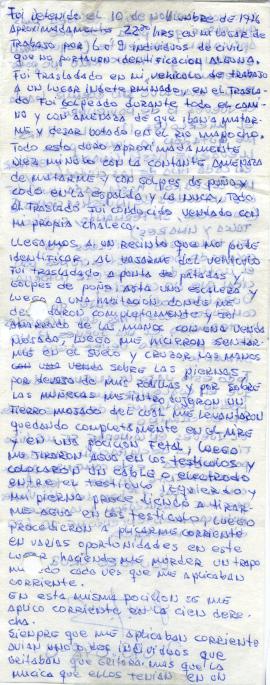 Fui detenido el 10 de Noviembre de
Aproximadamente 22⁰⁰ hrs en mi lugar de
trabajo por 6 o 9 individuos de civil
que no portaban identificación alguna.
Fui trasladado en mi vehiculo de trabajo
a un lugar indeterminado, en el trasla-
do fui golpeado durante todo el cami-
no y con amenaza de que iban a matar-
me y dejar botado en el Rio Mapocho.
Todo esto duro aproximadamente
minutos con la contante amenaza
de matarme y con golpes de puño y
codo en la espalda y la nuca, todo
el traslado fui conducido vendado con
mi propia chaleco.
Llegamos a un recinto que no pude
identificar, al bajarme del vehiculo
fui trasladado a punta de patadas y
golpes de puño, asta una escalera y
luego a una habitacion donde me
completamente y fui
amarrado de las manos con una venda
mojada, luego me hicieron sentar-
me en el suelo y cruzar las manos
sobre las piernas,
por debajo de mis rodillas y por sobre
las muñecas me introdujeron un
fierro mojado del cual me levantaron
quedando completamente en el aire
y en una pocicion fetal, luego
me tiraron agua en los testiculos y
colocaron un cable o electrodo
entre el testiculo izquierdo y
mi pierna procediendo a tirar-
me agua en los testiculo, luego
procedieron a plicarme corriente
en varias oportunidades en este
lugar, haciendome morder un trapo
mojado cada ves que me aplicaban
corriente.
En esta misma pocicion se me
aplico corriente en la cien dere-
cha.
Siempre que me aplicaban corriente
avian uno o dos individuos que
gritaban que gritara mas que la
musica que ellos tenian en un